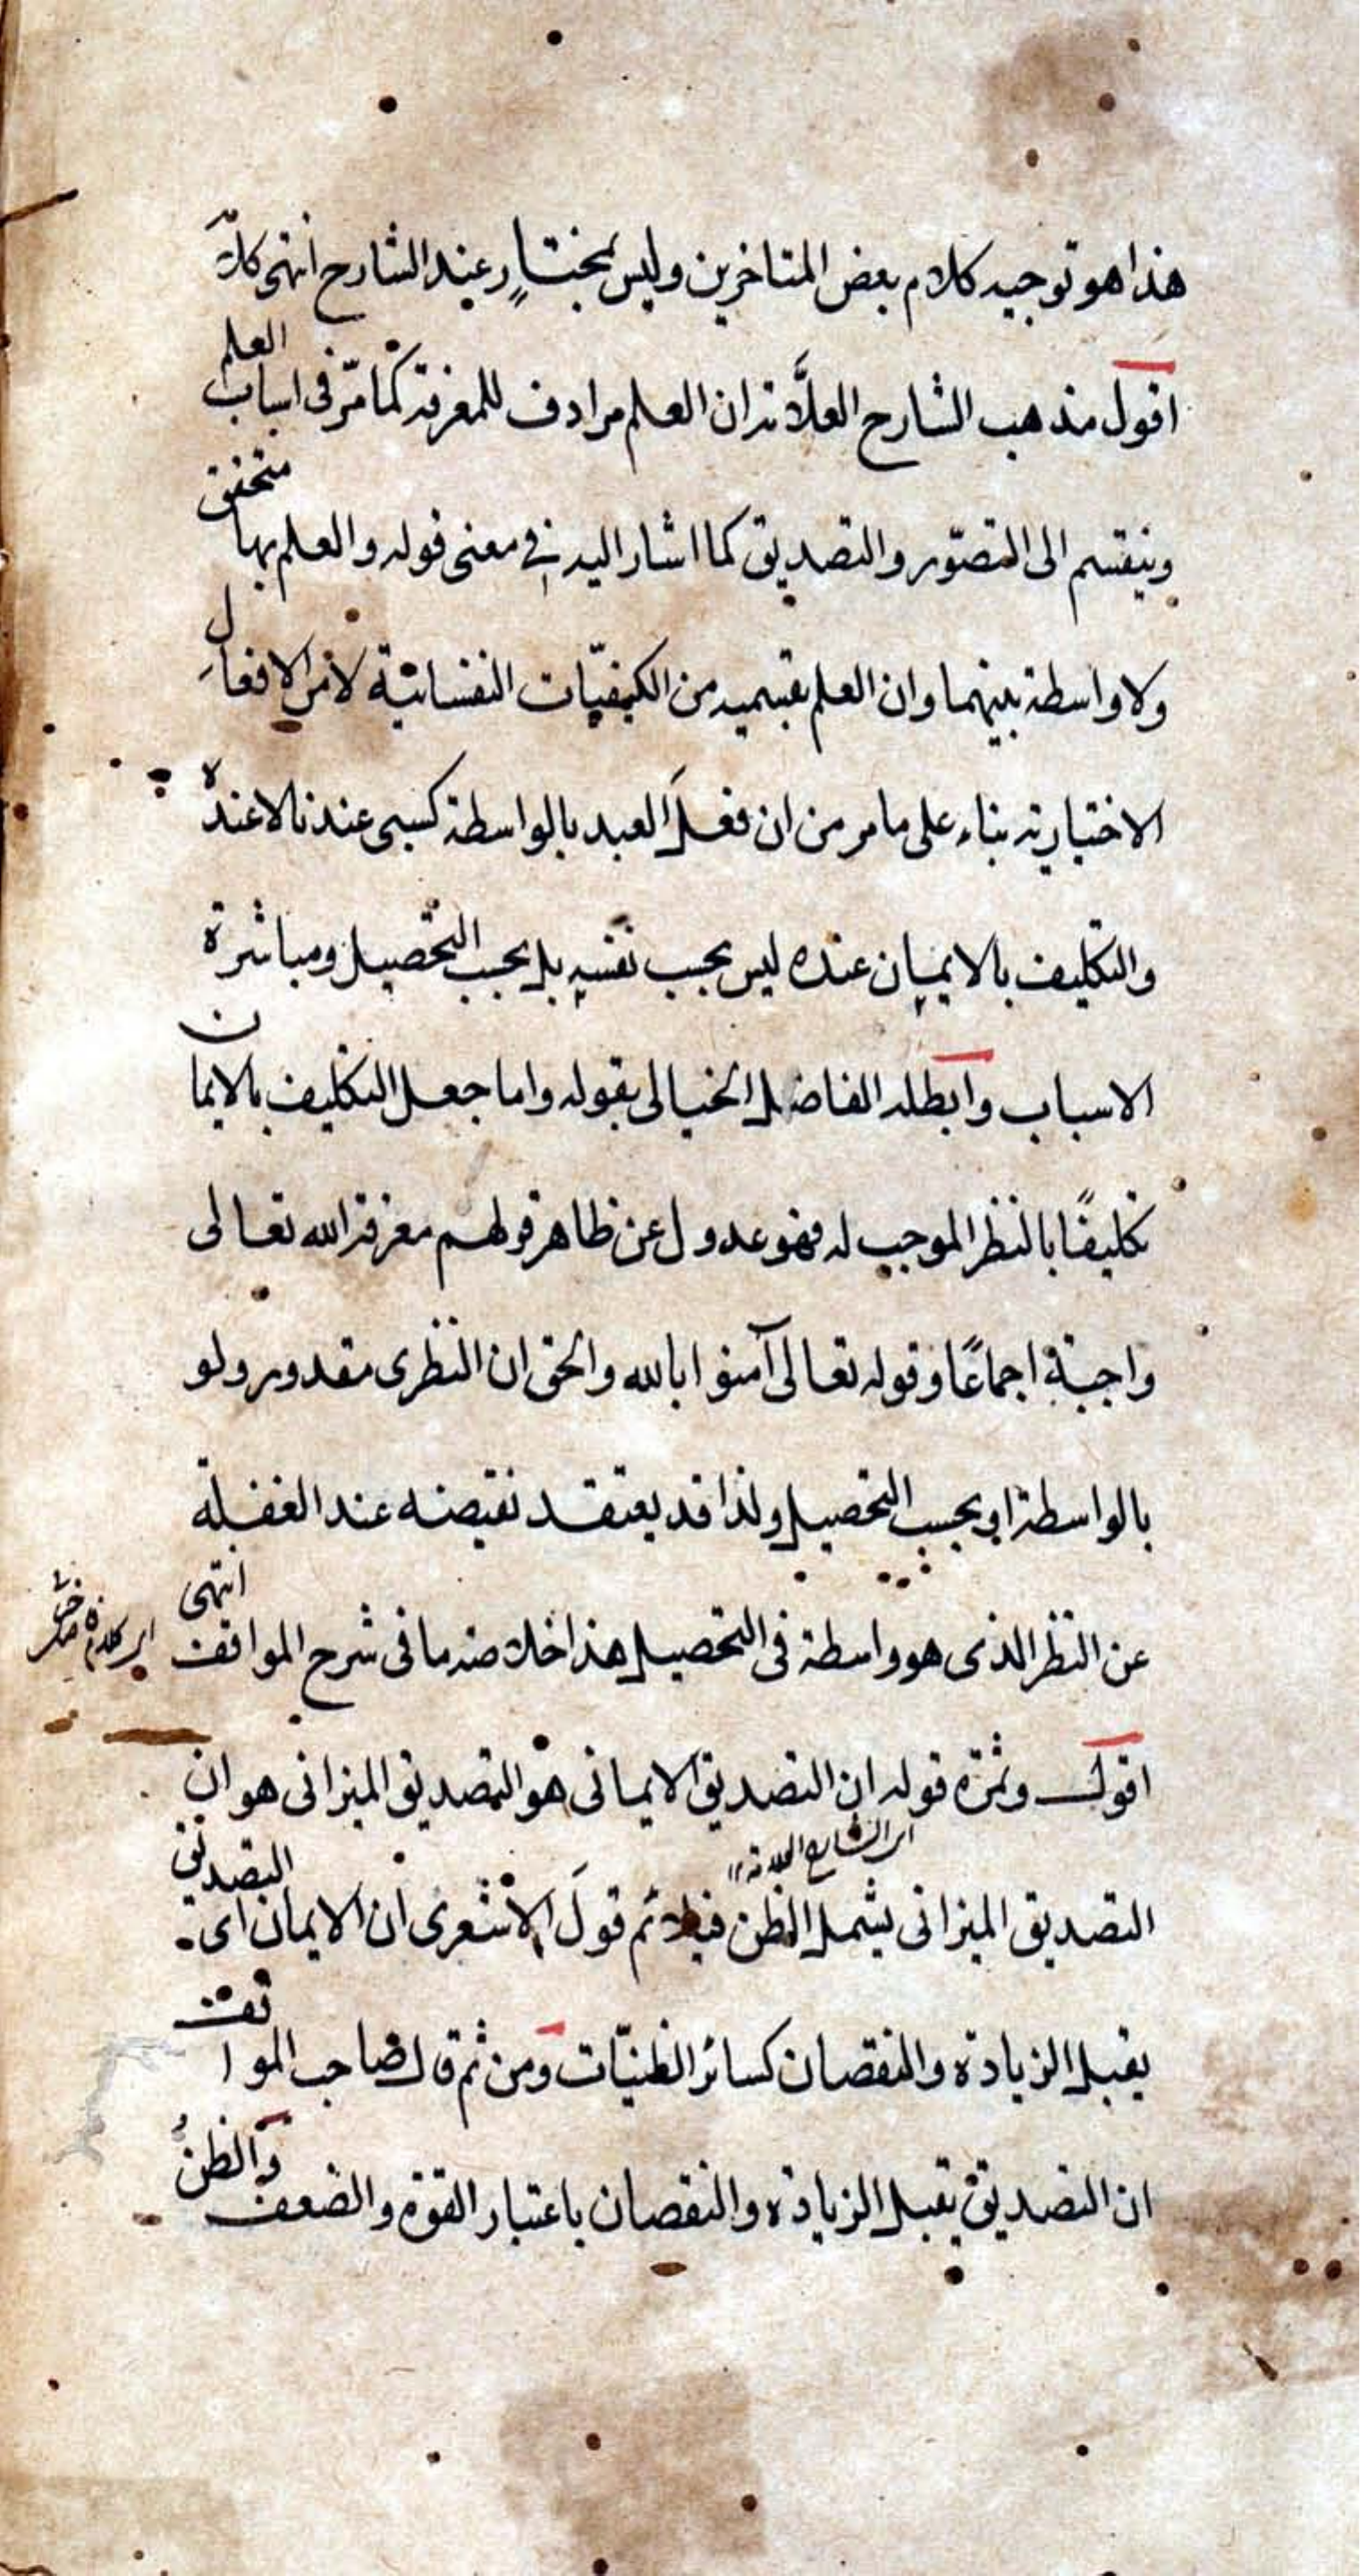 هذا هو توجيه كلام بعض المتاخرين وليس بمختار عند الشارح انتهى كلامه
اقول مذهب الشارح العلّامة ان العلم مرادف للمعرفة كما مرّ فى اسباب العلم
وينقسم الى التصوّر والتصديق كما اشار اليه فى معنى قوله والعلم بها متحقق
ولا واسطة بينهما وان العلم بقسميه من الكيفيّات النفسانية لا من الافعال
الاختيارية بناء على ما مر من ان فعل العبد بالواسطة كسبى عندنا لا عنده
والتكليف بالايمان عنده ليس بحسب نفسه بل بحسب التحصيل ومباشرة
الاسباب وابطله الفاضل الخيالى بقوله واما جعل التكليف بالايمان
تكليفًا بالنظر الموجب له فهو عدول عن ظاهر قولهم معرفة الله تعالى
واجبة اجماعًا وقوله تعالى آمنوا بالله والحق ان النظرى مقدور ولو
بالواسطة اى بحسب التحصيل ولذا قد يعتقد نقيضه عند الغفلة
عن النظر الذى هو واسطة فى التحصيل هذا خلاصة ما فى شرح المواقف انتهى
اى كلامه
اقول وثمرة قوله ان التصديق الايمانى هو التصديق الميزانى هو ان
اى الشارح العلامة
التصديق الميزانى يشمل الظن فيلائم قول الاشعرى ان الايمان اى التصديق
يقبل الزيادة والنقصان كسائر الظنيّات ومن ثم قال صاحب المواقف
ان التصديق يقبل الزيادة والنقصان باعتبار القوة والضعف والظن